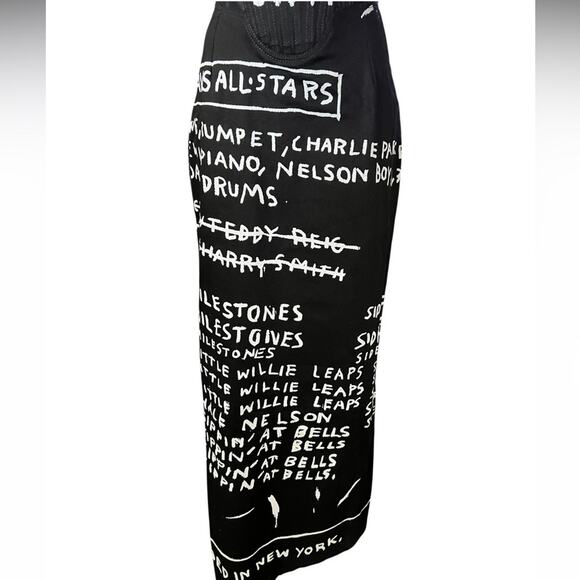 ALL·STARS
TRUMPET, CHARLIE PAR
PIANO, NELSON BOY
DRUMS
TEDDY REIG
HARRY SMITH
ILESTONES SID
ILESTONES SID
ILESTONES SIDE
TTLE WILLIE LEAPS
TTLE WILLIE LEAPS
TTLE WILLIE LEAPS
NELSON
IPPIN' AT BELLS
PPIN' AT BELLS
IPPIN' AT BELLS
IPPIN' AT BELLS.
RD IN NEW YORK.